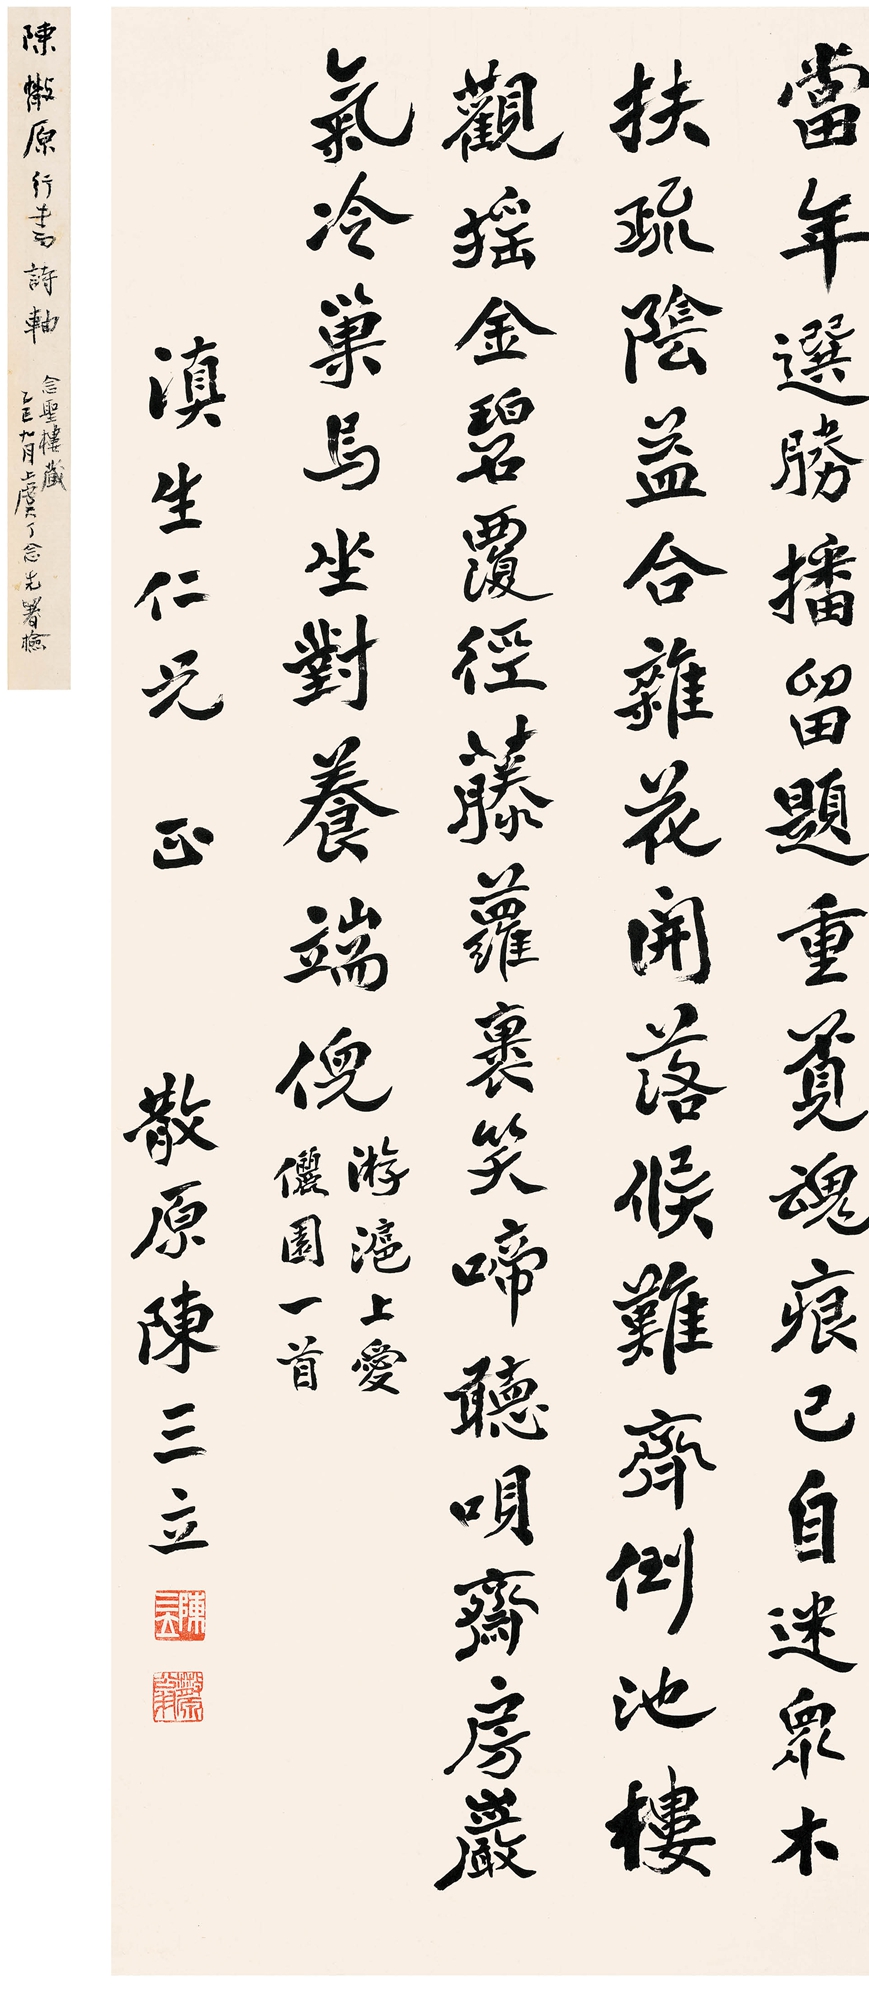 當年選勝播留題重覓魂痕已自迷眾木
扶疏陰益合雜花開落候難齊倒池樓
觀搖金碧覆徑藤蘿裹笑啼聽唄齋房巖
氣冷巢烏坐對養端倪
游滬上愛
儷園一首
滇生仁兄 正
散原陳三立
陳三立
散原
陳散原行書詩軸
念聖樓藏
乙巳九月上虞丁念先署檢